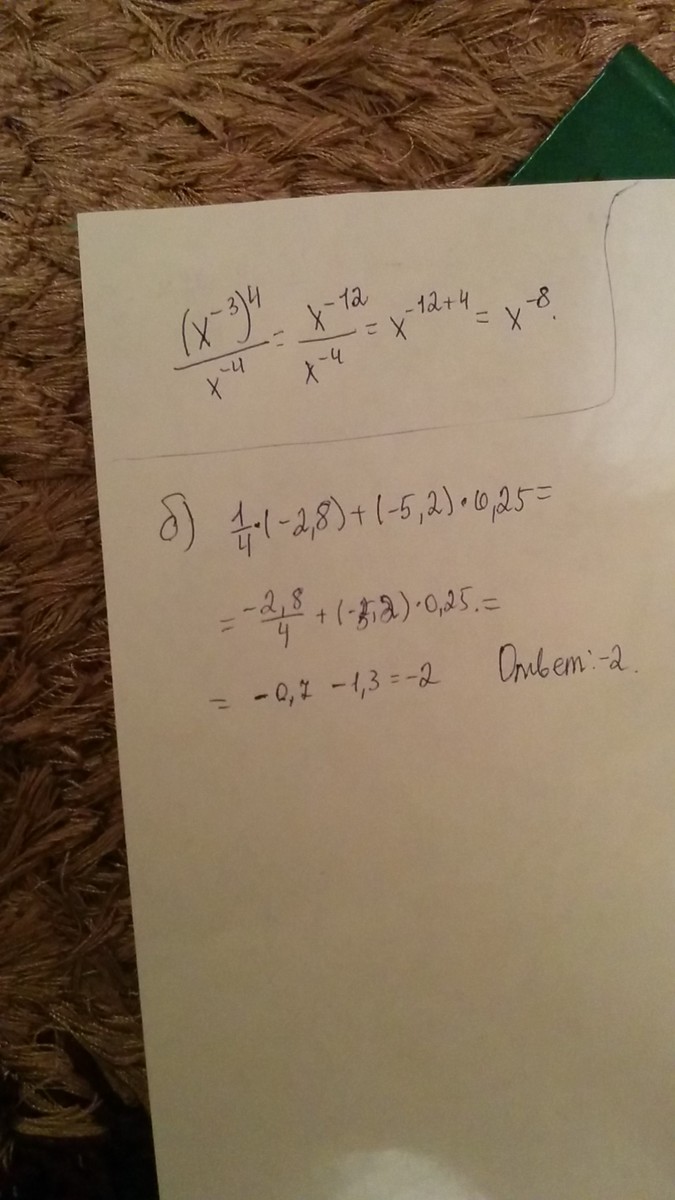 (x⁻³)⁴/x⁻⁴ = x⁻¹²/x⁻⁴ = x⁻¹²⁺⁴ = x⁻⁸.
б) 1/4·(-2,8)+(-5,2)·0,25=
= -2,8/4 + (-5,2)·0,25.=
= -0,7 -1,3=-2 Ответ:-2.